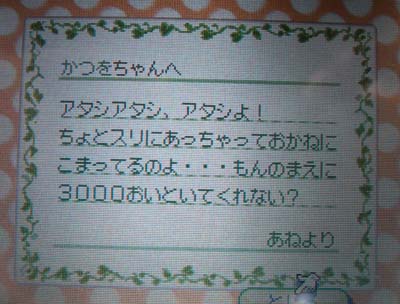 かつをちゃんへ
アタシアタシ、アタシよ！
ちょとスリにあっちゃっておかねに
こまってるのよ・・・もんのまえに
3000おいといてくれない？
あねより